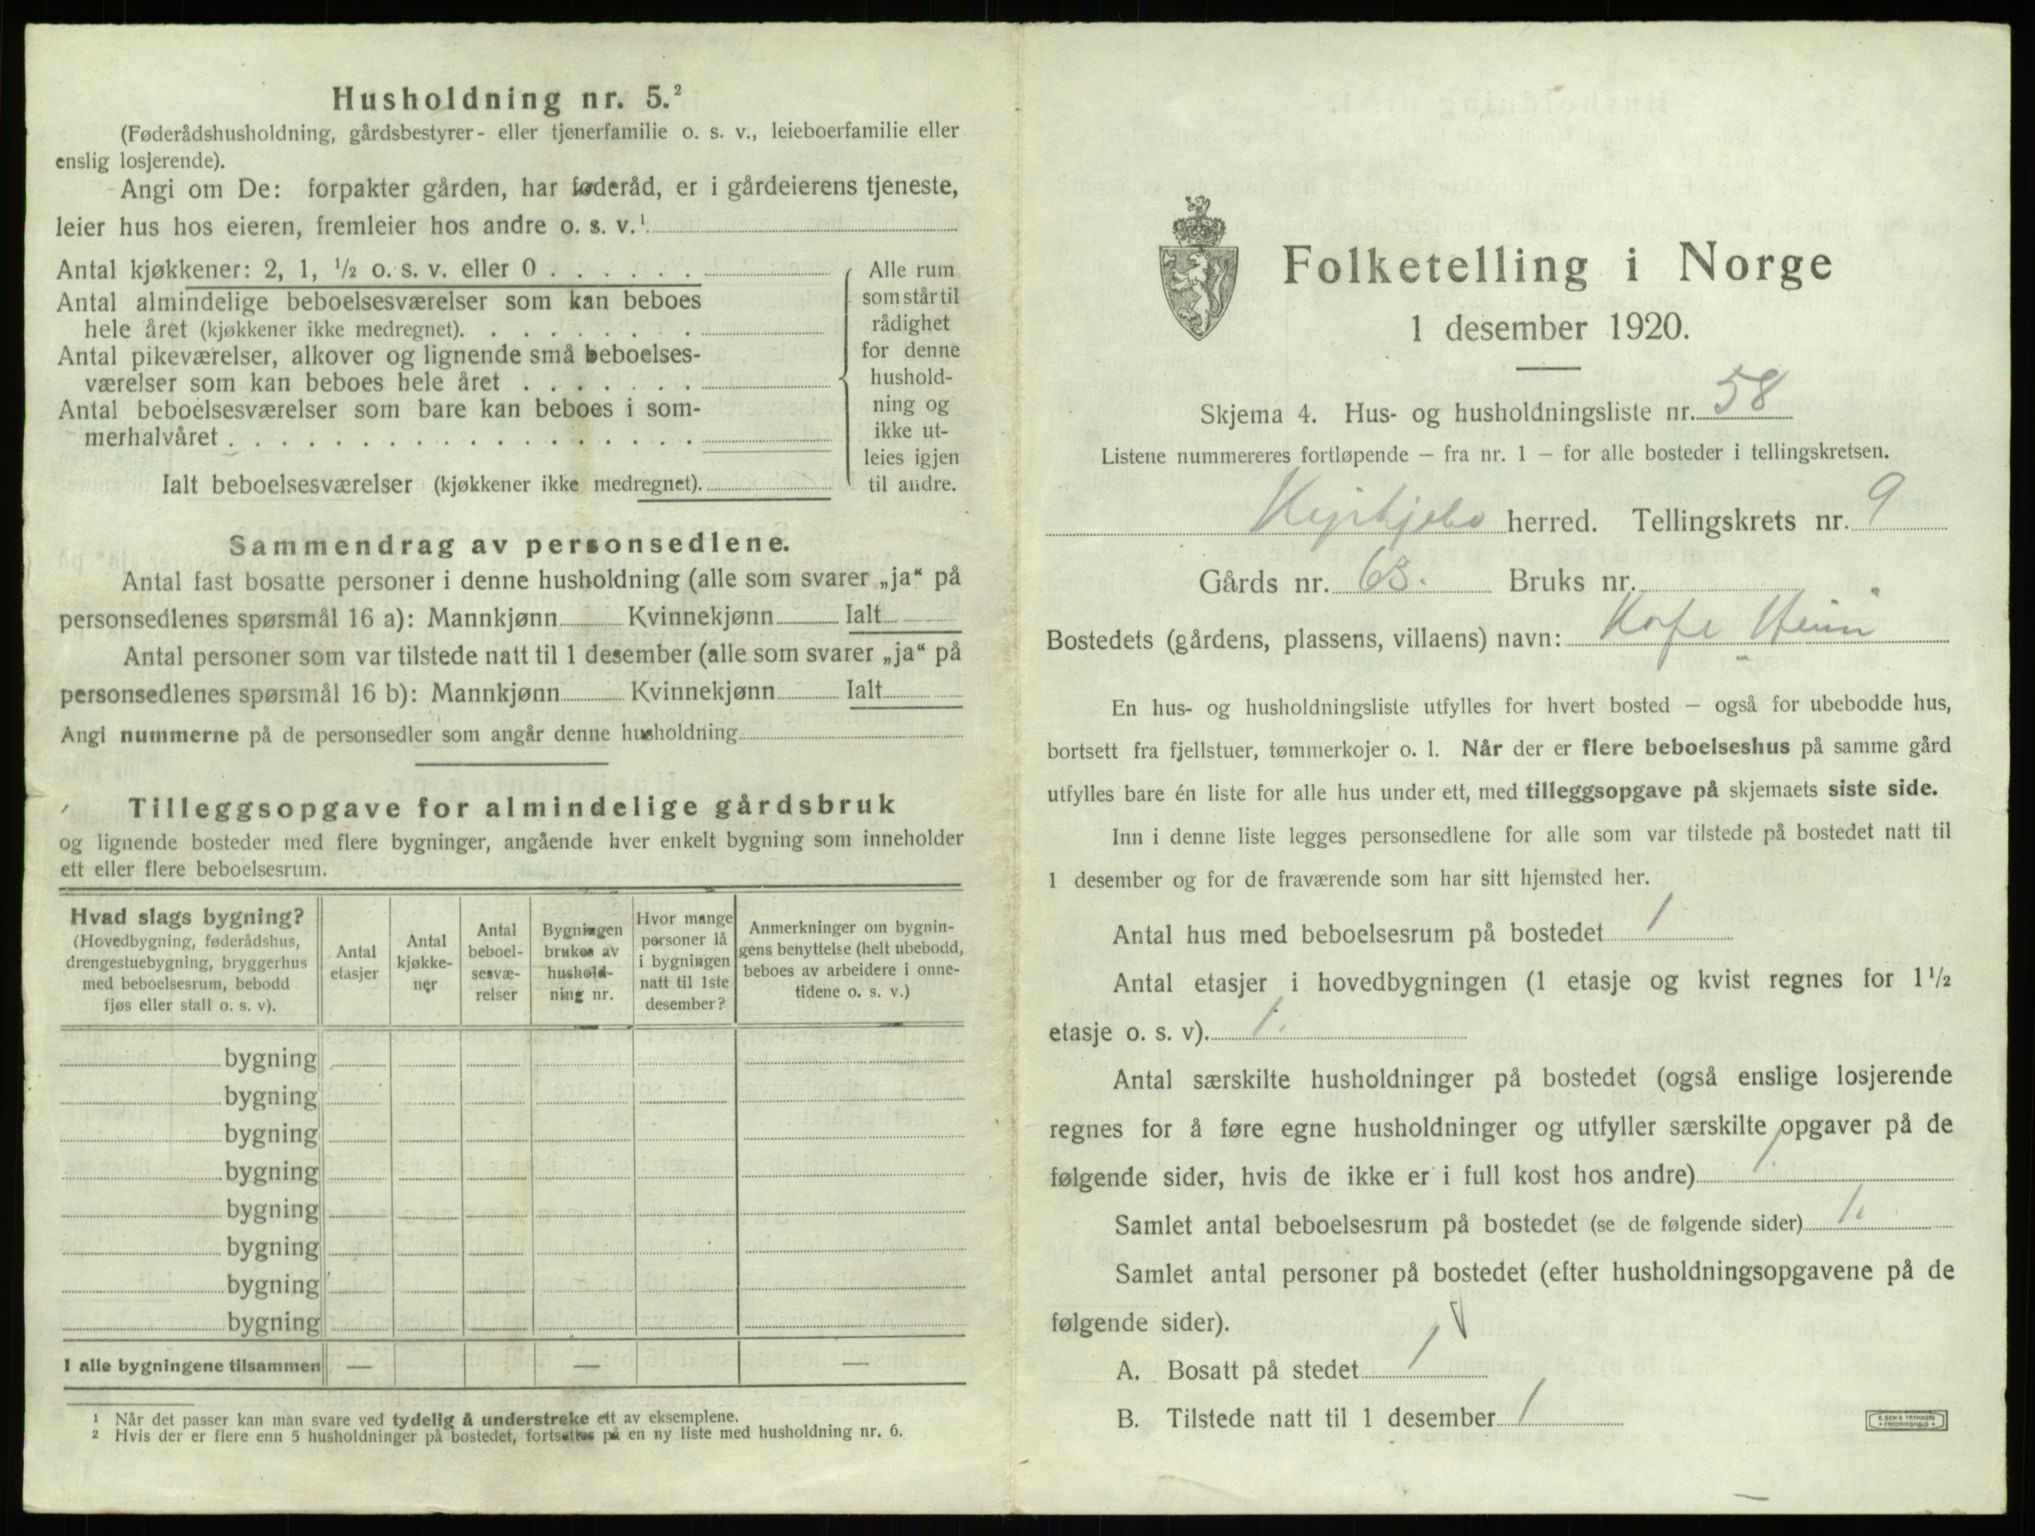 Husholdning nr. 5.²
(Føderådshusholdning, gårdsbestyrer- eller tjenerfamilie o. s. v., leieboerfamilie eller
enslig losjerende).
Angi om De: forpakter gården, har føderåd, er i gårdeierens tjeneste,
leier hus hos eieren, fremleier hos andre o. s. v.¹
Antal kjøkkener: 2, 1, ½ o. s. v. eller 0 . . . . . .
Antal almindelige beboelsesværelser som kan beboes
hele året (kjøkkener ikke medregnet). . . . . . . . .
Antal pikeværelser, alkover og lignende små beboelses-
værelser som kan beboes hele året . . . . . . .
Antal beboelsesværelser som bare kan beboes i som-
merhalvåret . . . . . . . . . . . . . . . . . .
Ialt beboelsesværelser (kjøkkener ikke medregnet).
Alle rum
som står til
rådighet
for denne
hushold-
ning og
ikke ut-
leies igjen
til andre.
Sammendrag av personsedlene.
Antal fast bosatte personer i denne husholdning (alle som svarer „ja“ på
personsedlenes spørsmål 16 a): Mannkjønn Kvinnekjønn Ialt
Antal personer som var tilstede natt til 1 desember (alle som svarer „ja“ på
personsedlenes spørsmål 16 b): Mannkjønn Kvinnekjønn Ialt
Angi nummerne på de personsedler som angår denne husholdning
Tilleggsopgave for almindelige gårdsbruk
og lignende bosteder med flere bygninger, angående hver enkelt bygning som inneholder
ett eller flere beboelsesrum.
Hvad slags bygning?
(Hovedbygning, føderådshus,
drengestuebygning, bryggerhus
med beboelsesrum, bebodd
fjøs eller stall o. s. v).
Antal
etasjer
Antal
kjøkke-
ner
Antal
beboel-
sesvæ-
relser
Bygningen
brukes av
hushold-
ning nr.
Hvor mange
personer lå
i bygningen
natt til 1ste
desember?
Anmerkninger om bygnin-
gens benyttelse (helt ubebodd,
beboes av arbeidere i onne-
tidene o. s. v.)
bygning
bygning
bygning
bygning
bygning
bygning
bygning
bygning
I alle bygningene tilsammen — — —
¹ Når det passer kan man svare ved tydelig å understreke ett av eksemplene.
² Hvis der er flere enn 5 husholdninger på bostedet, fortsettes på en ny liste med husholdning nr. 6.
Folketelling i Norge
1 desember 1920.
Skjema 4. Hus- og husholdningsliste nr. 58
Listene nummereres fortløpende – fra nr. 1 – for alle bosteder i tellingskretsen.
herred. Tellingskrets nr. 9
Gårds nr. 63. Bruks nr.
Bostedets (gårdens, plassens, villaens) navn:
En hus- og husholdningsliste utfylles for hvert bosted – også for ubebodde hus,
bortsett fra fjellstuer, tømmerkojer o. l. Når der er flere beboelseshus på samme gård
utfylles bare én liste for alle hus under ett, med tilleggsopgave på skjemaets siste side.
Inn i denne liste legges personsedlene for alle som var tilstede på bostedet natt til
1 desember og for de fraværende som har sitt hjemsted her.
Antal hus med beboelsesrum på bostedet 1
Antal etasjer i hovedbygningen (1 etasje og kvist regnes for 1½
etasje o. s. v). 1.
Antal særskilte husholdninger på bostedet (også enslige losjerende
regnes for å føre egne husholdninger og utfyller særskilte opgaver på de
følgende sider, hvis de ikke er i full kost hos andre) 1.
Samlet antal beboelsesrum på bostedet (se de følgende sider) 1.
Samlet antal personer på bostedet (efter husholdningsopgavene på de
følgende sider).
A. Bosatt på stedet 1
B. Tilstede natt til 1 desember 1